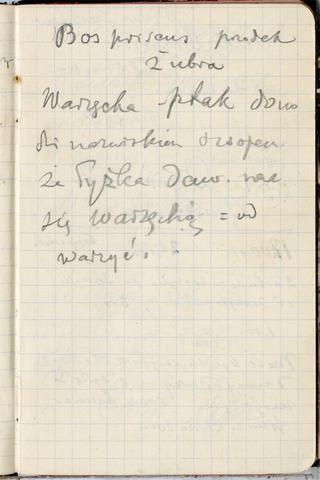 Bos priscus przodek
żubra
Warzęcha - ptak dano
dla nazwiskiem
że łyżka daw. zwa
się warzęchą = od
warzyć.